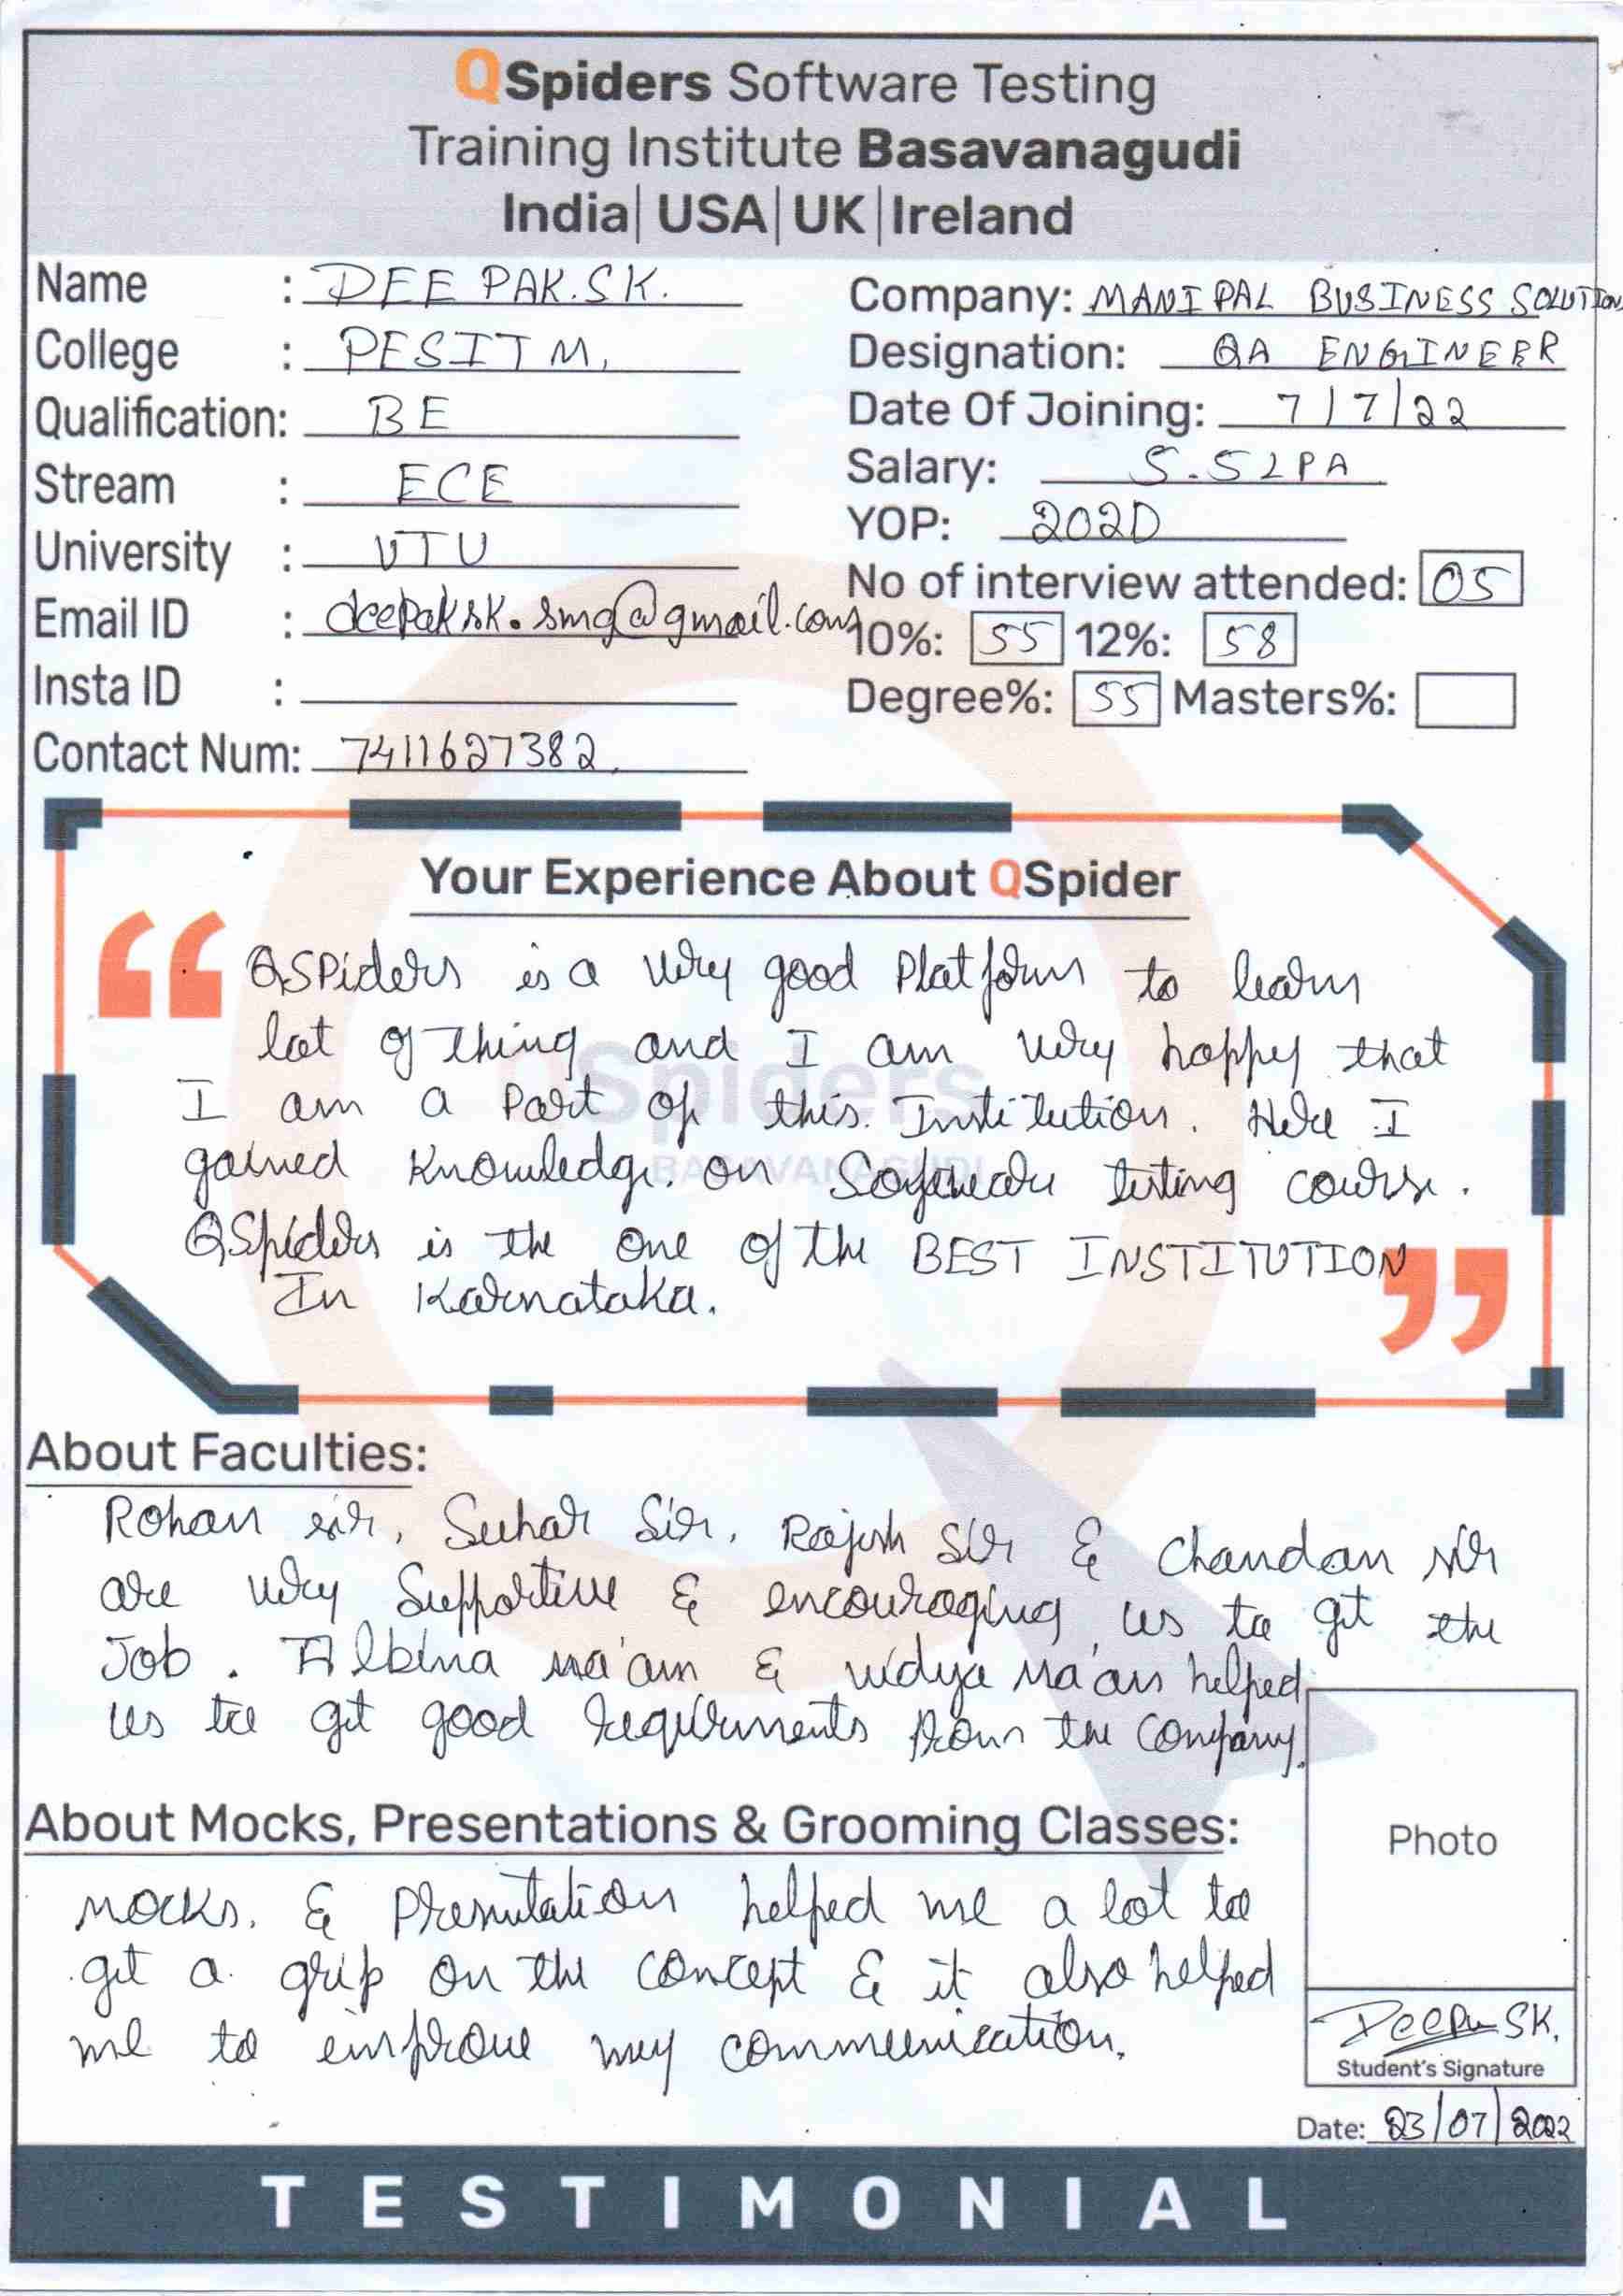 QSpiders Software Testing
Training Institute Basavanagudi
India| USA| UK |Ireland
Name : DEEPAK.SK.
College : PESITM,
Qualification: BE
Stream : ECE
University : VTU
Email ID : deepaksk.smg@gmail.com
Insta ID :
Contact Num: 7411627382
Company: MANIPAL BUSINESS SOLUTIONS
Designation: QA ENGINEER
Date Of Joining: 7/7/22
Salary: 5.5LPA
YOP: 2020
No of interview attended: 05
10%: 55 12%: 58
Degree%: 55 Masters%:
Your Experience About QSpider
QSPiders is a very good Platform to learn
lot of thing and I am very happy that
I am a Part of this Institution. Here I
gained Knowledge on Software testing course.
QSpiders is the one of the BEST INSTITUTION
In Karnataka.
QSpiders
BASAVANAGUDI
About Faculties:
Rohan sir, Suhas Sir, Rajesh Sir & Chandan sir
are very Supportive & encouraging us to get the
Job. Albina ma'am & vidya Ma'am helped
us to get good requirments from the Company.
About Mocks, Presentations & Grooming Classes:
Mocks. & Presentation helped me a lot to
get a grip on the concept & it also helped
me to improve my communication.
Photo
Deepu SK.
Student's Signature
Date: 23/07/2022
TESTIMONIAL